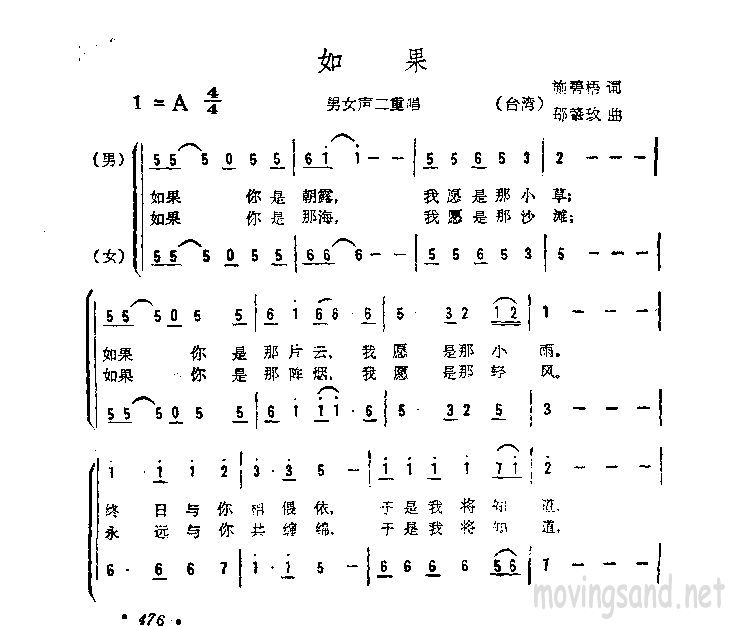 如果
1 = A 4/4 男女声二重唱 (台湾) 施碧梧 词
邰肇玫 曲
(男) 5 5 5 0 5 5 | 6 i i - - | 5 5 6 5 3 | 2 - - -
如果 你是朝露, 我愿是那小草;
如果 你是那海, 我愿是那沙滩;
(女) 5 5 5 0 5 5 | 6 6 6 - - | 5 5 6 5 3 | 5 - - -
5 5 5 0 5 5 | 6 i 6 6 · 6 | 5 · 3 2 1 2 | 1 - - -
如果 你是那片云, 我愿是那小雨。
如果 你是那阵烟, 我愿是那轻风。
5 5 5 0 5 5 | 6 i i i · 6 | 5 · 3 2 5 | 3 - - -
i · i i 2 | 3 · 3 5 - | i i i i 7 i | 2 - - -
终日与你相偎依, 于是我将知道,
永远与你共缠绵, 于是我将知道,
6 · 6 6 7 | i · i 5 - | 6 6 6 6 5 6 | 7 - - -
· 476 ·
movingsand.net